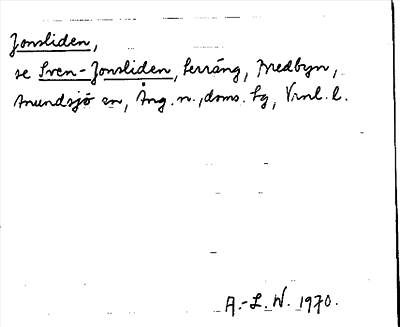 Jonsliden,
se Sven-Jonsliden, terräng, Fredbyn,
Anundsjö sn, Ång. n., doms. sg, Vrnl. l.
A.-L. W. 1970.